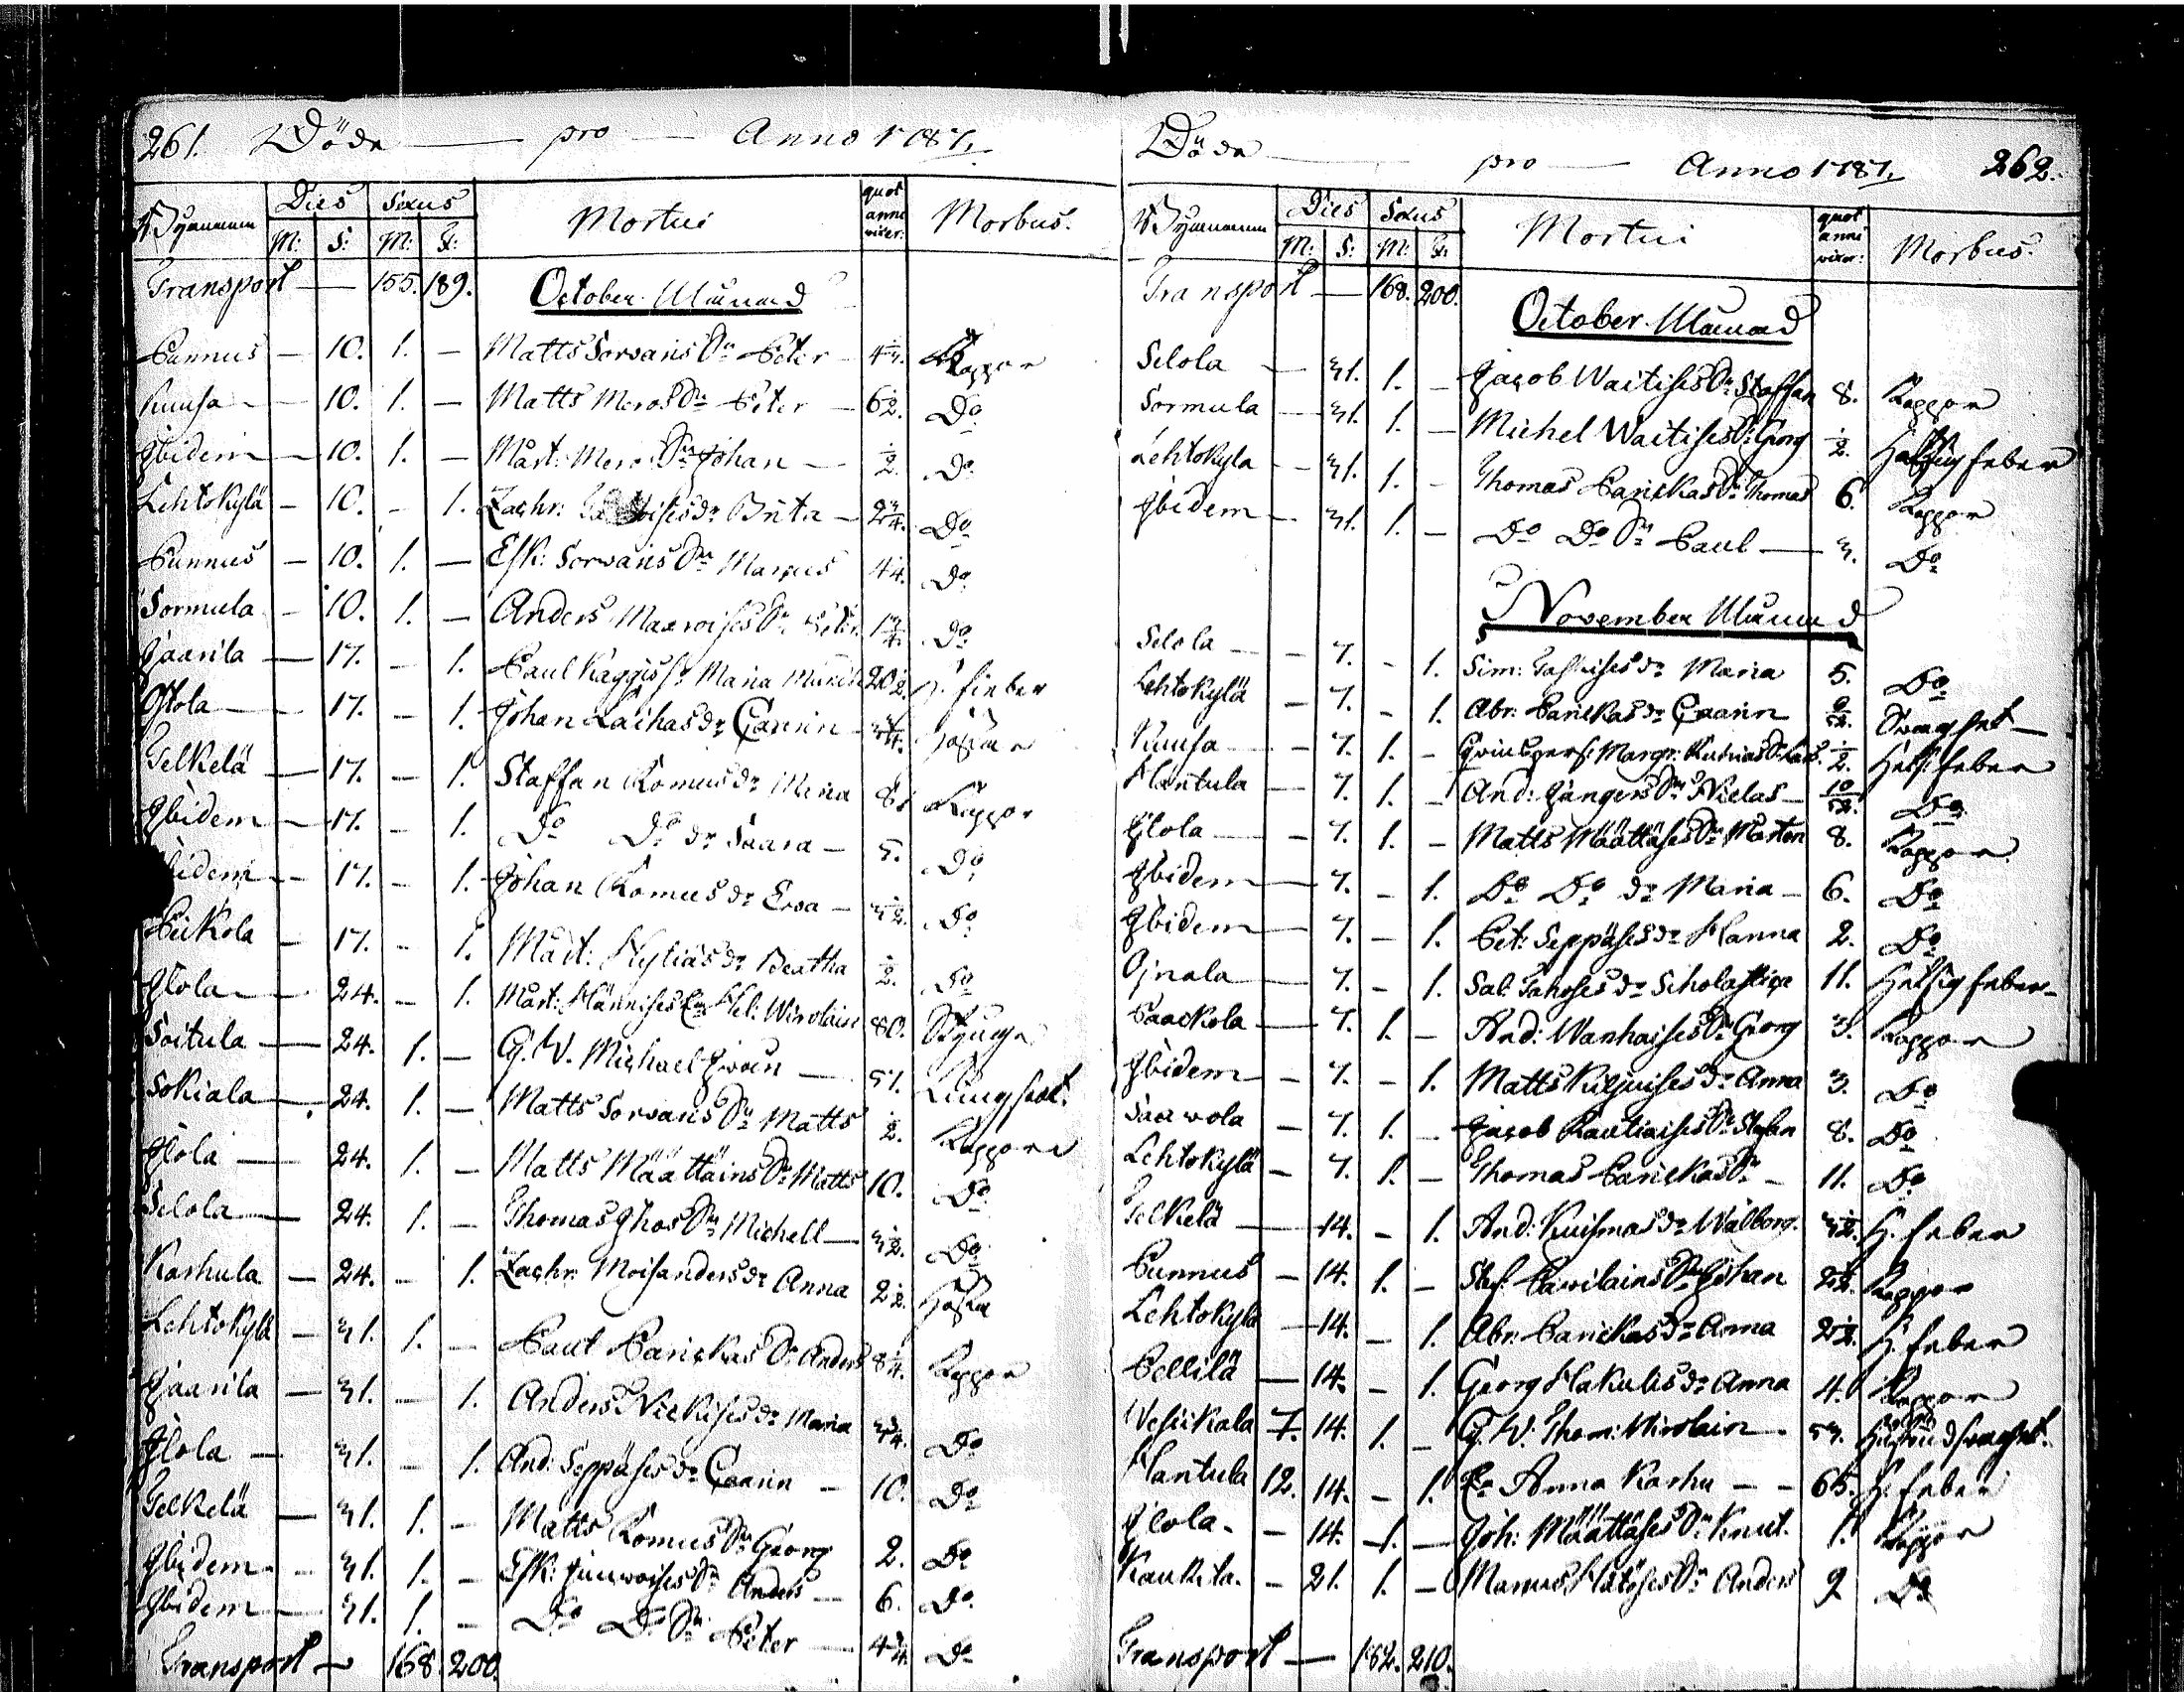 261. Döde — pro — Anno 1787.
Dies Sexus Mortui quot anni vixer: Morbus.
M: S: M: F:
Transport — 155. 189. October Månad
Punnus — 10. 1. — Matts Sorvaris Sn Peter — Koppor
Kuusa — 10. 1. — Matts Meros Sn Peter — 6 1/2. Do
Ibidem — 10. 1. — Mårt: Mero Sn Johan — 1/2. Do
Lehtokylä — 10. - 1. Zachr: dr Brita — Do
Punnus — 10. 1. — Esk: Sorvaris Sn Marcus Do
Sormula — 10. 1. — Anders Sn Peter Do
Jaarila — 17. - 1. Paul Maria 20 1/2. H. feber
Ostola — 17. - 1. Johan Laihas dr Caarin Hosta
Telkelä — 17. - 1. Staffan Romus dr Maria 8. Koppor
Ibidem — 17. - 1. Do Do dr Saara — 5. Do
Ibidem — 17. - 1. Johan Romus dr Ewa — 3 1/2. Do
Pukola — 17. - 1. Mårt: Hylias dr Beatha 1/2. Do
Ilola — 24. - 1. Mårt: Hännises E. Hel: Wirolain 80.
Soitula — 24. 1. — G. W. Michael — 57. Lungsot.
Sokiala — 24. 1. — Matts Sorvaris Sn Matts 1/2. Koppor
Ilola — 24. 1. — Matts Määttäins Sn Matts 10. Do
Selola — 24. 1. — Thomas Ihos Sn Michell — 3 1/2. Do
Karhula — 24. - 1. Zachr: Moisanders dr Anna 2 1/2. Hosta
Lehtokylä — 31. 1. — Paul Parickas Sn Anders 8 1/4. Koppor
Jaarila — 31. — 1. Anders Nickises dr Maria Do
Ilola — 31. — 1. And: Seppäses dr Caarin — 10. Do
Telkelä — 31. 1. — Matts Romus Sn Georg 2. Do
Ibidem — 31. 1. — Esk: Sn Anders — 6. Do
Ibidem — 31. 1. — Do Do Sn Peter — Do
Transport — 168. 200.
Döde — pro — Anno 1787. 262.
Dies Sexus Mortui quot anni vixer: Morbus.
M: S: M: F:
Transport — 168. 200.
October Månad
Selola — 31. 1. — Jacob Waitises Sn Staffan 8. Koppor
Sormula — 31. 1. — Michel Waitises Sn Georg 1/2. Hetsig feber
Lehtokyla — 31. 1. - Thomas Parickas Sn Thomas 6. Koppor
Ibidem — 31. 1. — Do Do Sn Paul — 3. Do
November Månad
Selola — 7. - 1. Sim: dr Maria 5. Do
Lehtokylä 7. - 1. Abr: Parickas dr Caarin
Kuusa — 7. 1. — Margr: 1/2. Hets: feber
Hantula — 7. 1. — And: Jängers Sn Niclas — 10/52. Do
Ilola — 7. 1. — Matts Määttäses Sn Mårten 8. Koppor
Ibidem — 7. - 1. Do Do dr Maria — 6. Do
Ibidem — 7. - 1. Pet: Seppäses dr Hanna 2. Do
Ojnala — 7. - 1. Sal: Tahoses dr Scholastica 11. Hetsig feber —
Paackola — 7. 1. — And: Wanhaises Sn Georg 3. Koppor
Ibidem — 7. - 1. Matts Kiljuises dr Anna 3. Do
Saarwola — 7. 1. — Jacob Rautiaises Sn Stefan 8. Do
Lehtokylä — 7. 1. — Thomas Parickas Sn — 11. Do
Telkelä — 14. - 1. And: Kuismas dr Wålborg. 3 1/2. H. feber
Punnus — 14. 1. — Stef: Pavilains Sn Johan 2 1/2. Koppor
Lehtokylä — 14. — 1. Abr: Parickas dr Anna 2 1/2. H. feber
Pellilä — 14. - 1. Georg Hakulis dr Anna 4. Koppor
Wesikkala 7. 14. 1. — G. W. Thom: Wirolain
Hantula 12. 14. - 1. E. Anna Karhu — 65. H. feber
Ilola — 14. 1. — Joh: Määttäses Sn Knut. 1. Koppor
Kaukila. — 21. 1. — Marcus Hätöses Sn Anders 9 Do
Transport — 182. 210.